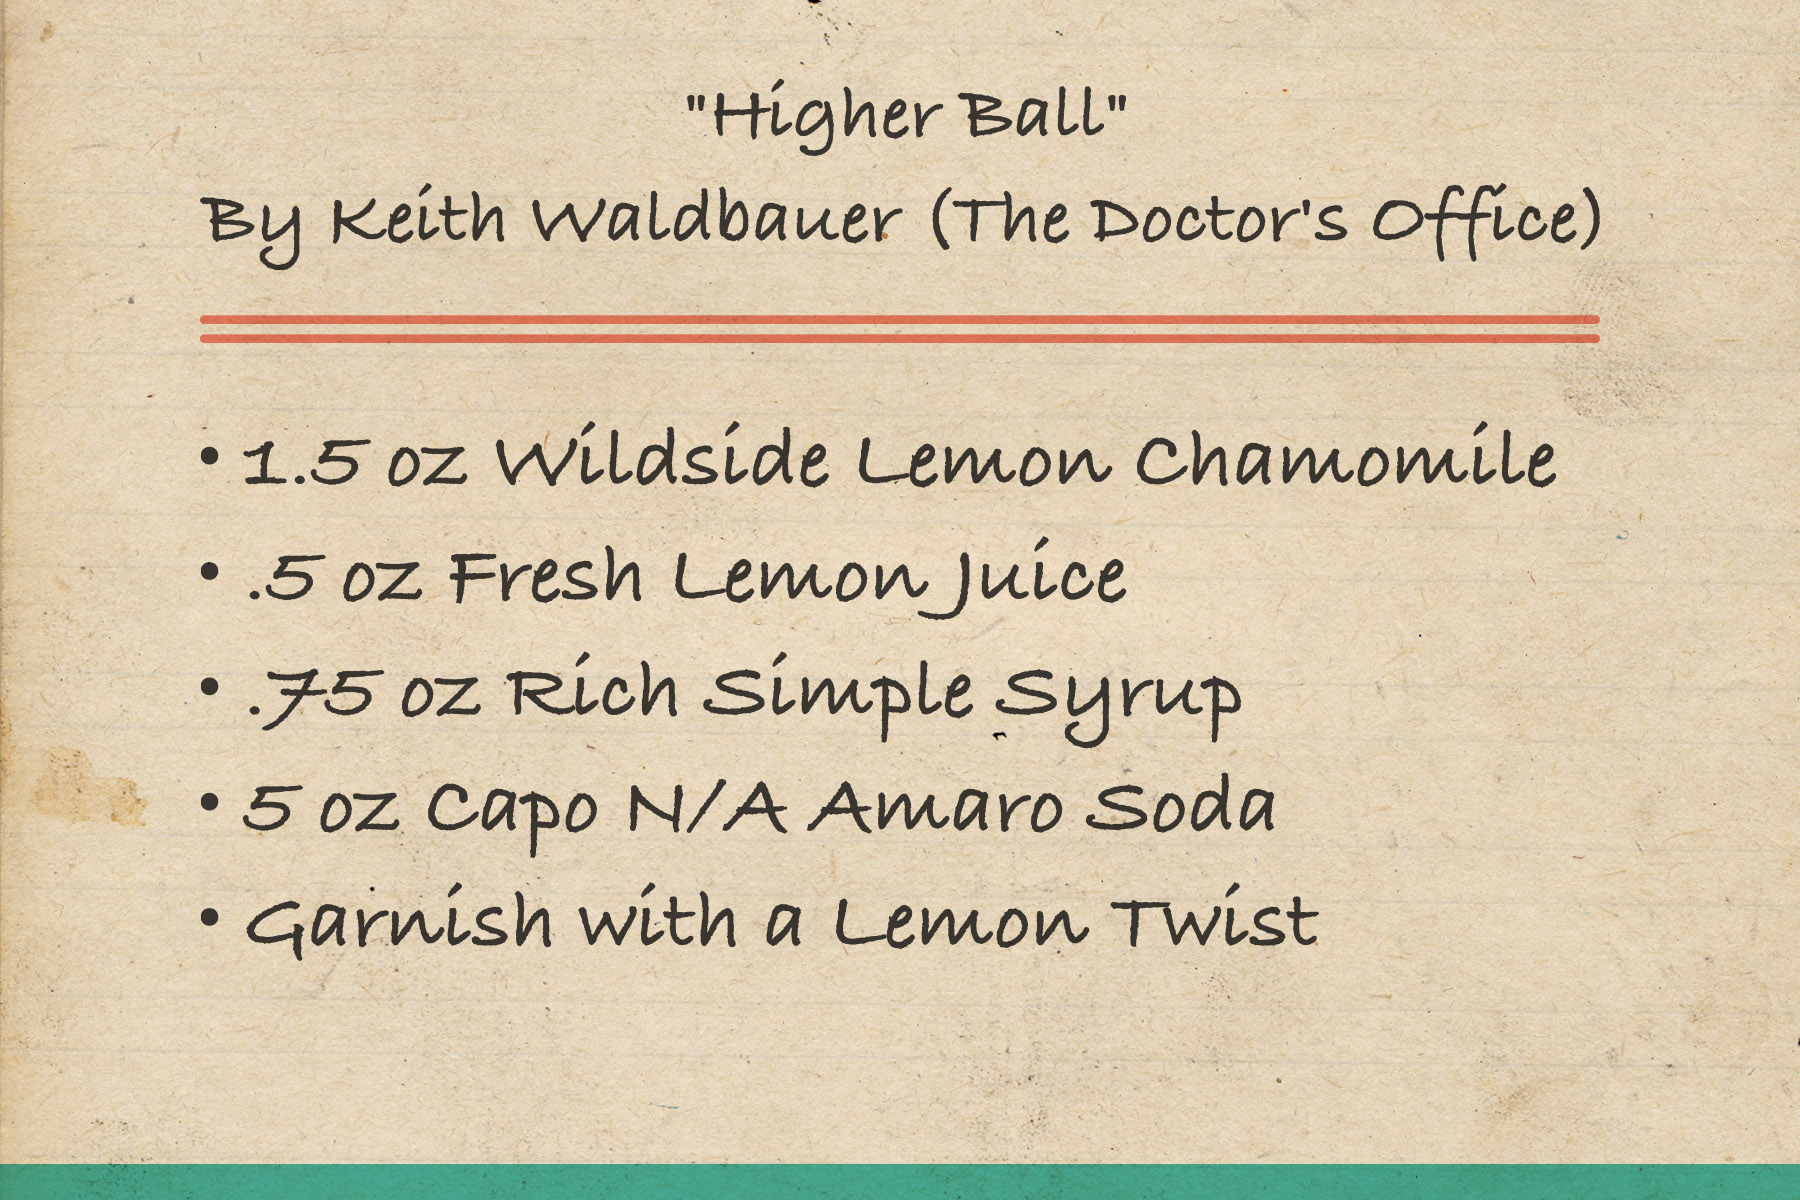 "Higher Ball"
By Keith Waldbauer (The Doctor's Office)
• 1.5 oz Wildside Lemon Chamomile
• .5 oz Fresh Lemon Juice
• .75 oz Rich Simple Syrup
• 5 oz Capo N/A Amaro Soda
• Garnish with a Lemon Twist